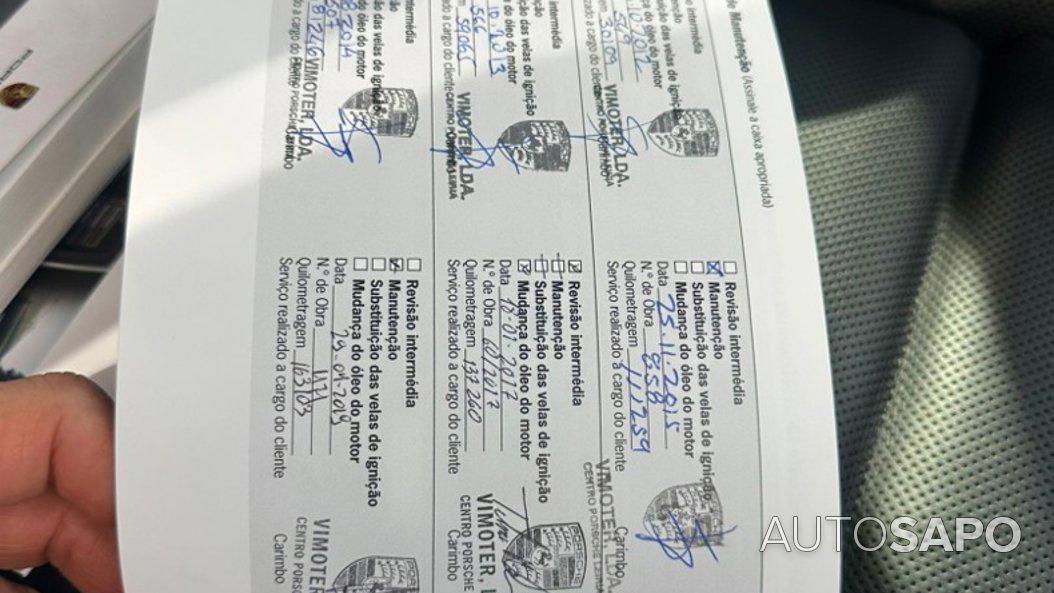 de Manutenção (Assinale a caixa apropriada)
intermédia
do óleo do motor
VIMOTER, LDA.
Revisão intermédia
Manutenção
Substituição das velas de ignição
Mudança do óleo do motor
Data 25.11.2015
N.º de Obra 858
Quilometragem 111259
Serviço realizado a cargo do cliente
Carimbo
VIMOTER, LDA.
CENTRO PORSCHE LEIRIA
intermédia
das velas de ignição
do óleo do motor
10.2013
566
59065
a cargo do cliente
VIMOTER, LDA.
Revisão intermédia
Manutenção
Substituição das velas de ignição
Mudança do óleo do motor
Data 18.01.2017
N.º de Obra 60/2017
Quilometragem 137260
Serviço realizado a cargo do cliente
Carimbo
VIMOTER, L
CENTRO PORSCHE
intermédia
ão das velas de ignição
do óleo do motor
2014
81246
a cargo do
VIMOTER, LDA.
Carimbo
Revisão intermédia
Manutenção
Substituição das velas de ignição
Mudança do óleo do motor
Data 29-04-2019
N.º de Obra
Quilometragem 163103
Serviço realizado a cargo do cliente
Carimbo
VIMOTER
CENTRO PORS
AUTOSAPO